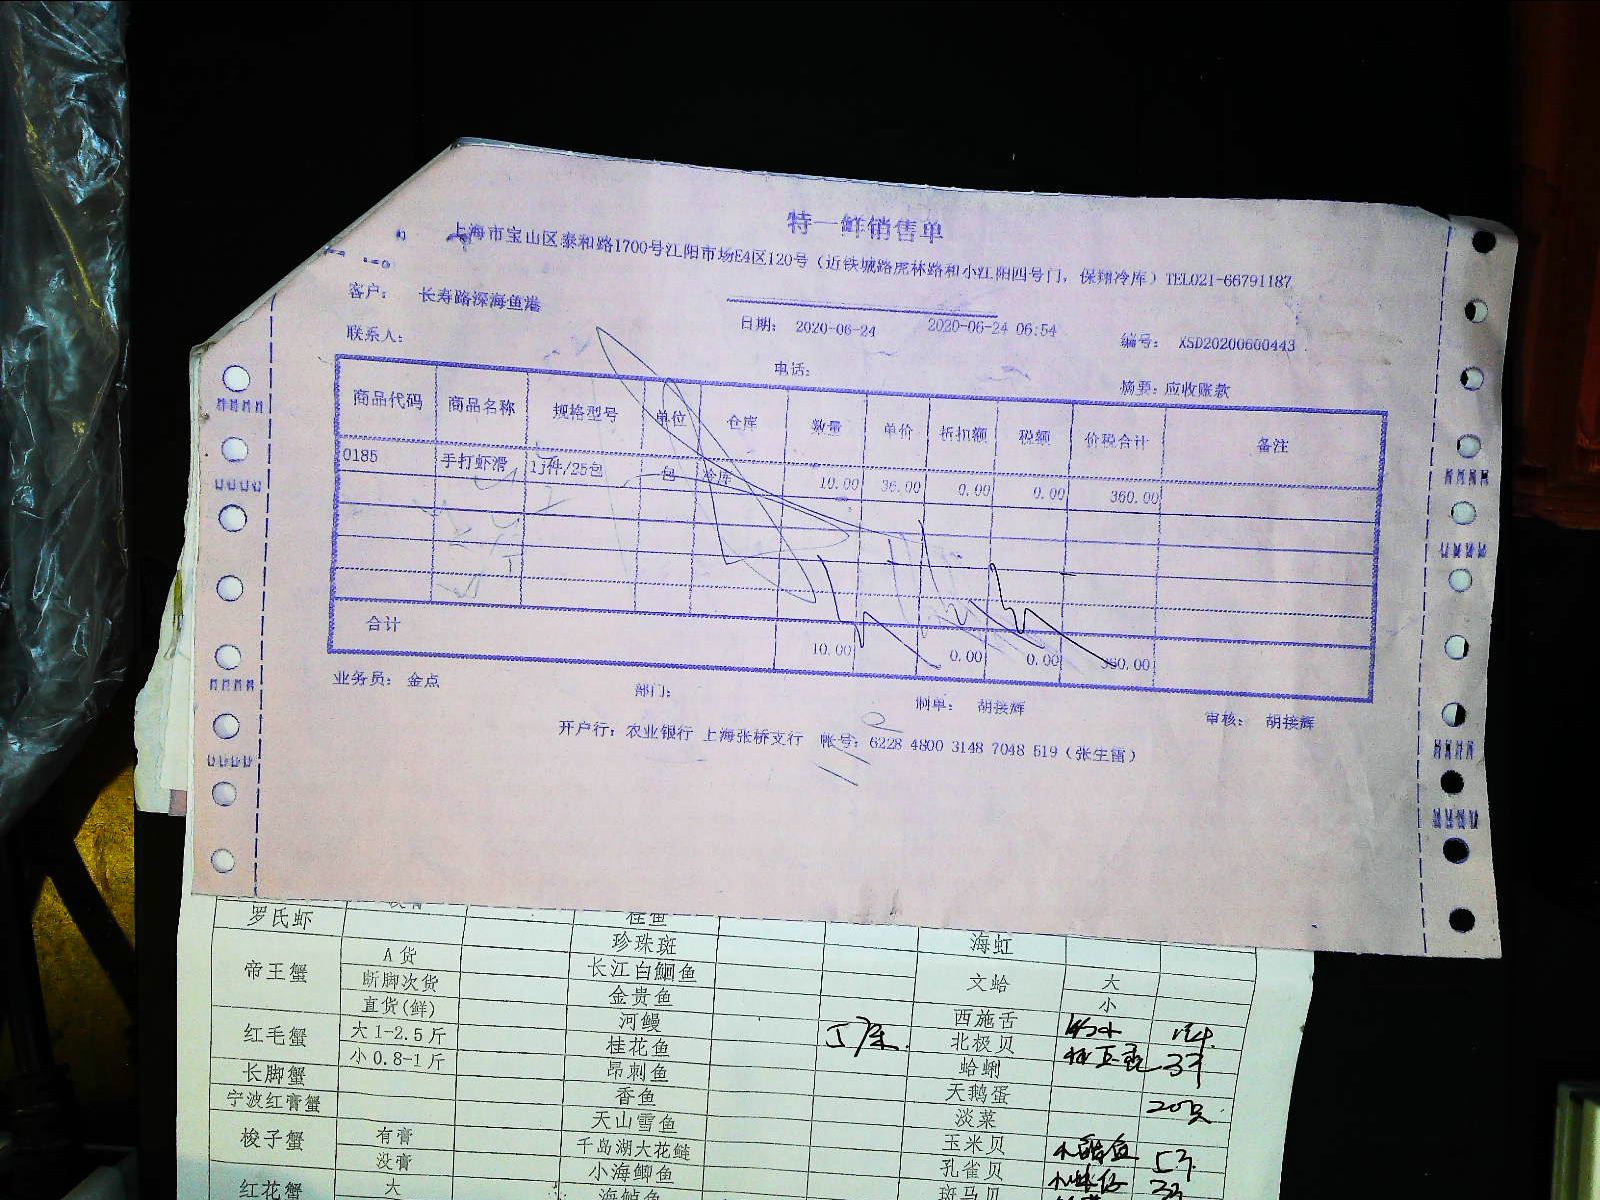 特一鲜销售单
上海市宝山区泰和路1700号江阳市场E4区120号（近铁城路虎林路和小江阳四号门，保翔冷库）TEL021-66791187
客户： 长寿路深海鱼港
日期： 2020-06-24 2020-06-24 06:54 编号： XSD20200600443
联系人： 电话： 摘要：应收账款
商品代码 商品名称 规格型号 单位 仓库 数量 单价 折扣额 税额 价税合计 备注
0185 手打虾滑 1j件/25包 包 冷库 10.00 36.00 0.00 0.00 360.00
合计 10.00 0.00 0.00 360.00
业务员： 金点 部门： 制单： 胡接辉 审核： 胡接辉
开户行：农业银行 上海张桥支行 帐号：6228 4800 3148 7048 519（张生雷）
罗氏虾 桂鱼
珍珠斑 海虹
帝王蟹 A货 长江白鮰鱼 文蛤 大
断脚次货 金贵鱼 小
直货(鲜) 河鳗 西施舌
红毛蟹 大1-2.5斤 桂花鱼 北极贝
小0.8-1斤 昂刺鱼 蛤蜊
长脚蟹 香鱼 天鹅蛋
宁波红膏蟹 天山雪鱼 淡菜 20只
梭子蟹 有膏 千岛湖大花鲢 玉米贝
没膏 小海鲫鱼 孔雀贝
红花蟹 大 海鲈鱼 斑马贝